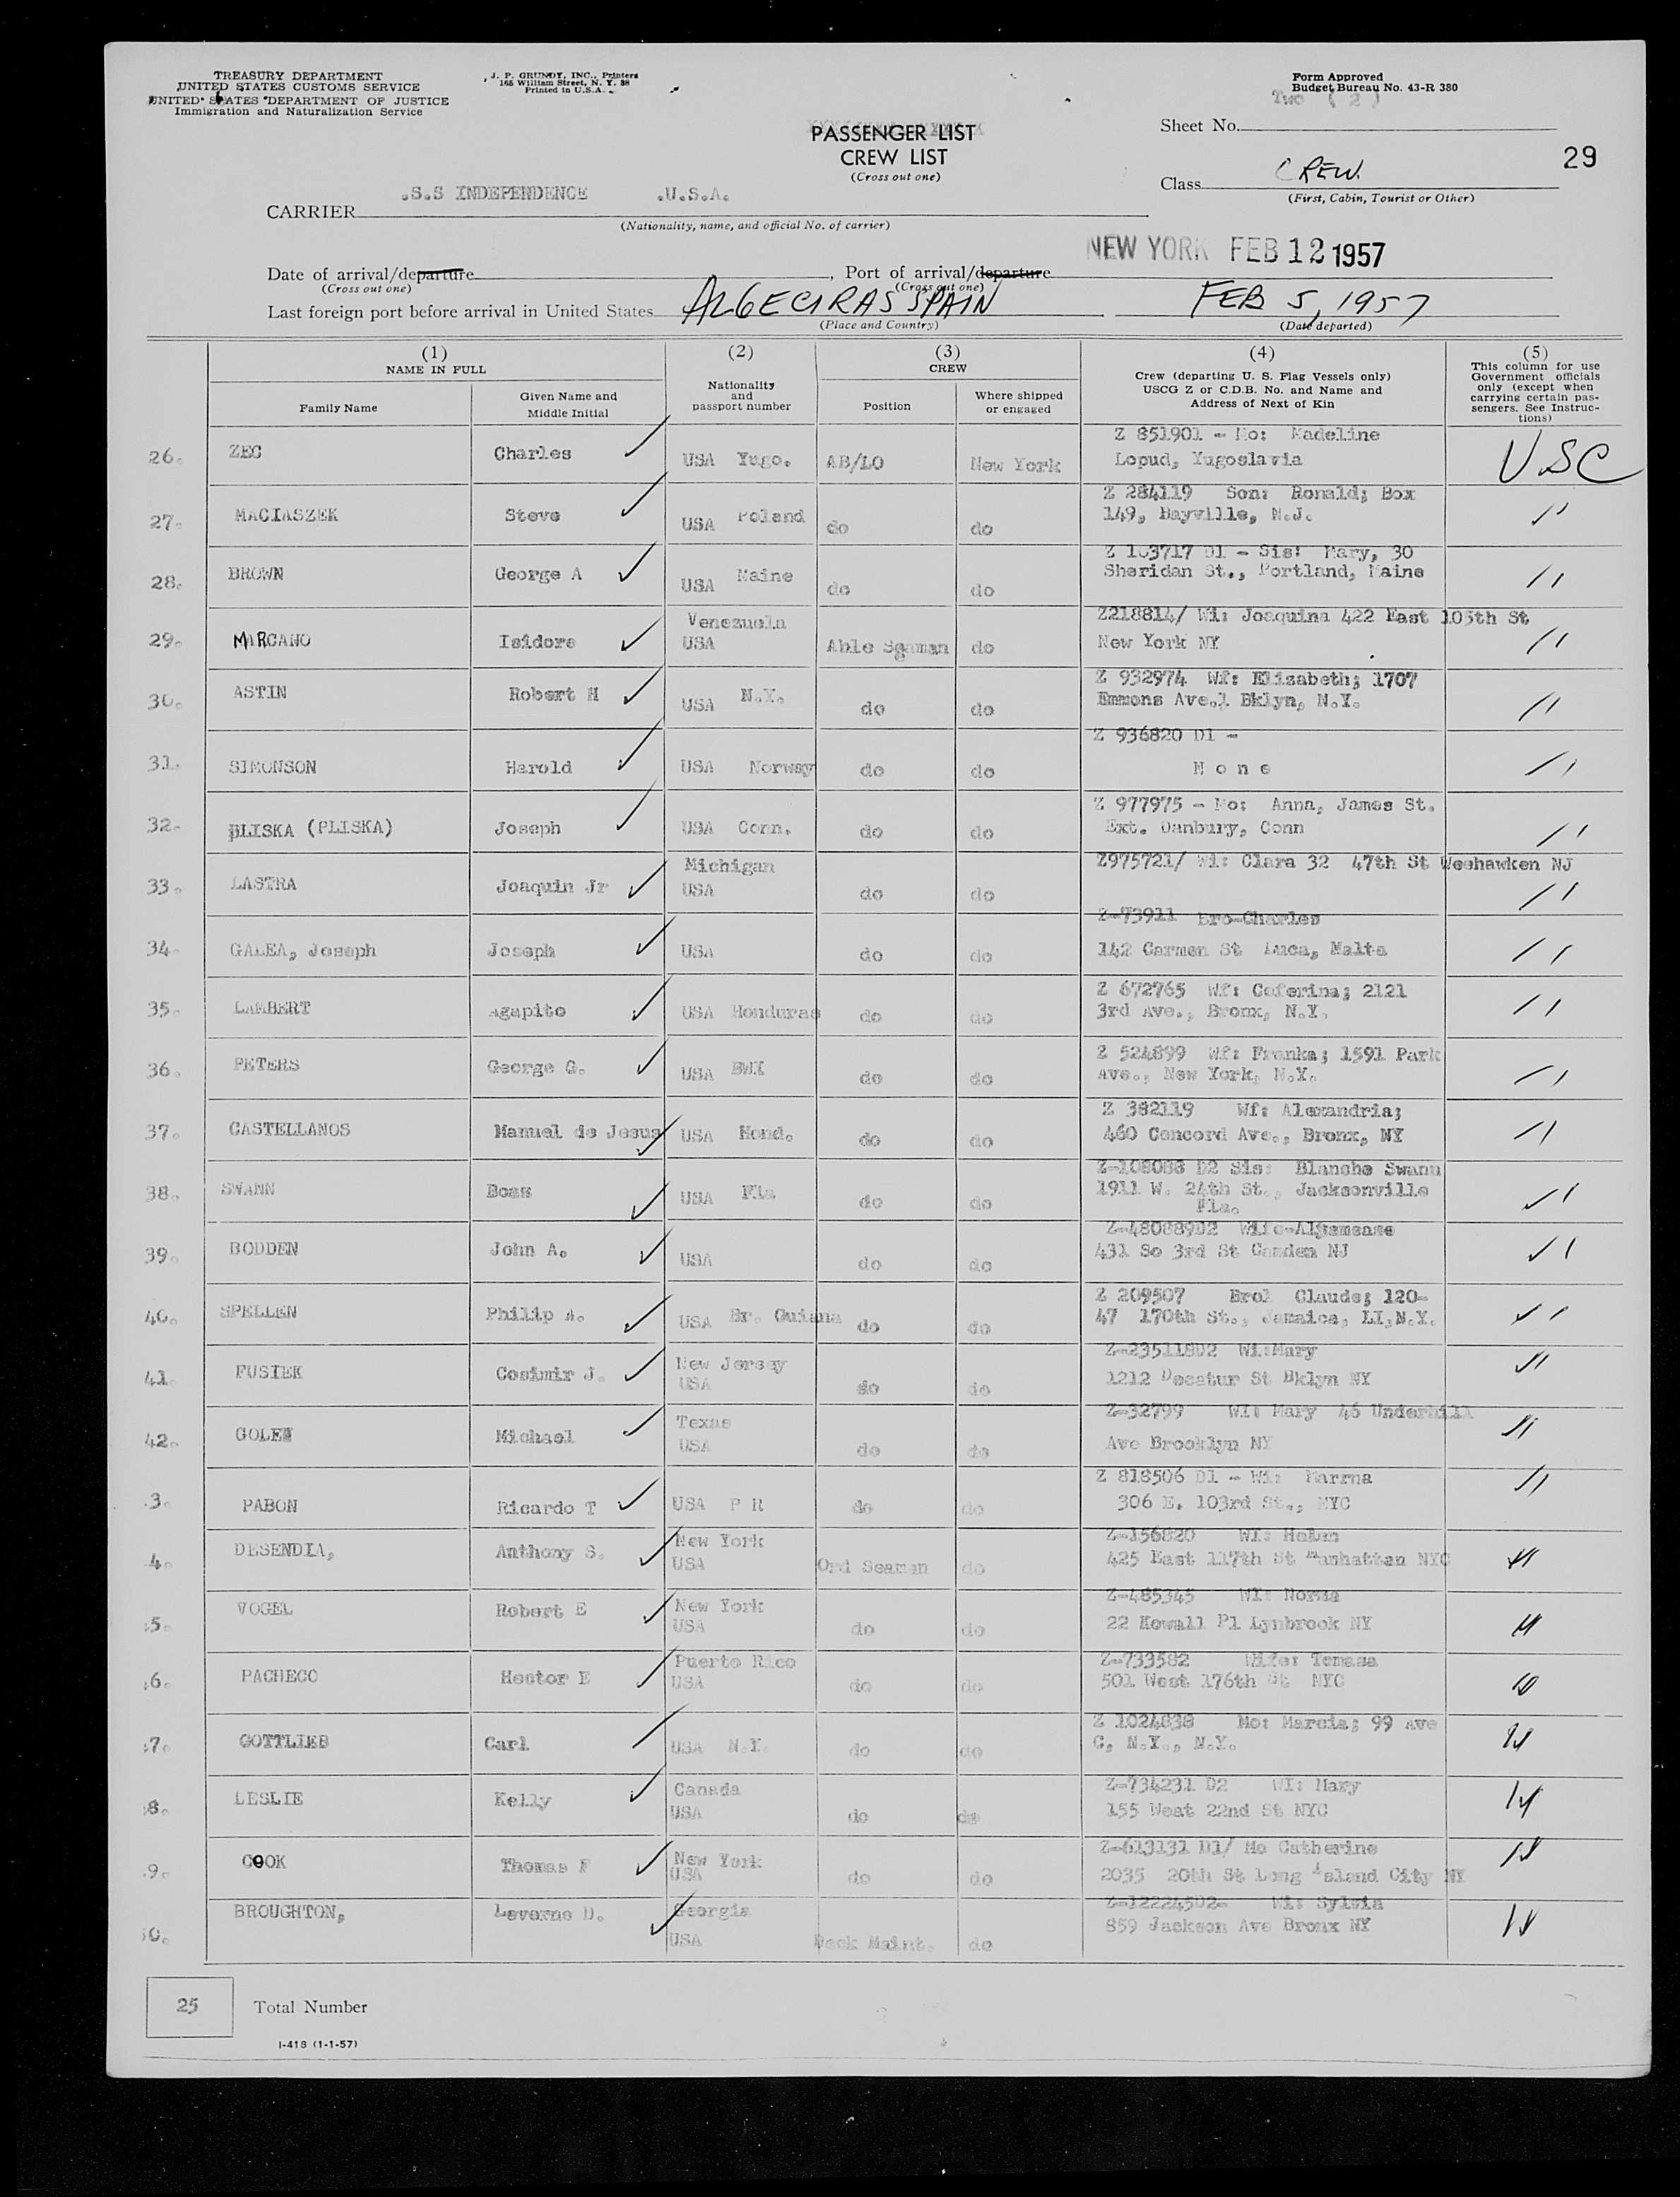 TREASURY DEPARTMENT
UNITED STATES CUSTOMS SERVICE
UNITED STATES DEPARTMENT OF JUSTICE
Immigration and Naturalization Service
J. P. GRUNDY, INC., Printers
165 William Street, N. Y. 38
Printed in U.S.A.
Form Approved
Budget Bureau No. 43-R 380
Two (2)
Sheet No.
PASSENGER LIST
CREW LIST
(Cross out one)
29
Class CREW
(First, Cabin, Tourist or Other)
CARRIER .S.S INDEPENDENCE .U.S.A.
(Nationality, name, and official No. of carrier)
NEW YORK FEB 12 1957
Date of arrival/departure , Port of arrival/departure
(Cross out one) (Cross out one)
Last foreign port before arrival in United States ALGECIRAS SPAIN FEB 5, 1957
(Place and Country) (Date departed)
(1) NAME IN FULL
Family Name
Given Name and Middle Initial
(2) Nationality and passport number
(3) CREW
Position
Where shipped or engaged
(4) Crew (departing U. S. Flag Vessels only) USCG Z or C.D.B. No. and Name and Address of Next of Kin
(5) This column for use Government officials only (except when carrying certain passengers. See Instructions)
26. ZEC Charles USA Yugo. AB/LO New York Z 851901 - Mo: Madeline
Lopud, Yugoslavia USC
27. MACIASZEK Steve USA Poland do do Z 284119 Son: Ronald; Box
149, Bayville, N.J. "
28. BROWN George A USA Maine do do Z 103717 D1 - Sis: Mary, 30
Sheridan St., Portland, Maine "
29. MARCANO Isidore Venezuela USA Able Seaman do Z218814/ Wi: Joaquina 422 East 105th St
New York NY "
30. ASTIN Robert H USA N.Y. do do Z 932974 Wf: Elizabeth; 1707
Emmons Ave.) Bklyn, N.Y. "
31. SIMONSON Harold USA Norway do do Z 936820 D1 -
None "
32. PLISKA (PLISKA) Joseph USA Conn. do do Z 977975 - Mo: Anna, James St.
Ext. Danbury, Conn "
33. LASTRA Joaquin Jr Michigan USA do do Z975721/ Wi: Clara 32 47th St Weehawken NJ "
34. GALEA, Joseph Joseph USA do do Z-73911 Bro-Charles
142 Carmen St Luca, Malta "
35. LAMBERT Agapito USA Honduras do do Z 672765 Wf: Ceferina; 2121
3rd Ave., Bronx, N.Y. "
36. PETERS George G. USA BWI do do Z 524899 Wf: Franka; 1591 Park
Ave., New York, N.Y. "
37. CASTELLANOS Manuel de Jesus USA Hond. do do Z 382119 Wf: Alexandria;
460 Concord Ave., Bronx, NY "
38. SWANN Boas USA Fla do do Z-108088 D2 Sis: Blanche Swann
1911 W. 24th St., Jacksonville
Fla. "
39. BODDEN John A. USA do do Z-480889D2
431 So 3rd St Camden NJ "
40. SPELLEN Philip A. USA Br. Guiana do do Z 209507 Bro: Claude; 120-
47 170th St., Jamaica, LI,N.Y. "
41. FUSIEK Cosimir J. New Jersey USA do do Z-235118D2 Wi:Mary
1212 Decatur St Bklyn NY "
42. GOLEN Michael Texas USA do do Z-32799 Wi: Mary 46 Underhill
Ave Brooklyn NY "
3. PABON Ricardo T USA P R do do Z 818506 D1 - Wi:
306 E. 103rd St., NYC "
4. DESENDIA, Anthony S. New York USA Ord Seaman do Z-156820 Wi: Helen
425 East 117th St Manhattan NYC "
5. VOGEL Robert E New York USA do do Z-485345 Wi: Norma
22 Howall Pl Lynbrook NY "
6. PACHECO Hector E Puerto Rico USA do do Z-733582 Wife: Tomasa
501 West 176th St NYC "
7. GOTTLIEB Carl USA N.Y. do do Z 1024838 Mo: Marcia; 99 Ave
C, N.Y., N.Y. "
8. LESLIE Kelly Canada USA do do Z-734231 D2 WI: Mary
155 West 22nd St NYC "
9. COOK Thomas F New York USA do do Z-613131 D1/ Mo Catherine
2035 20th St Long Island City NY "
0. BROUGHTON, Laverne D. Georgia USA Deck Maint. do Z-122245D2- Wi: Sylvia
859 Jackson Ave Bronx NY "
25 Total Number
I-418 (1-1-57)